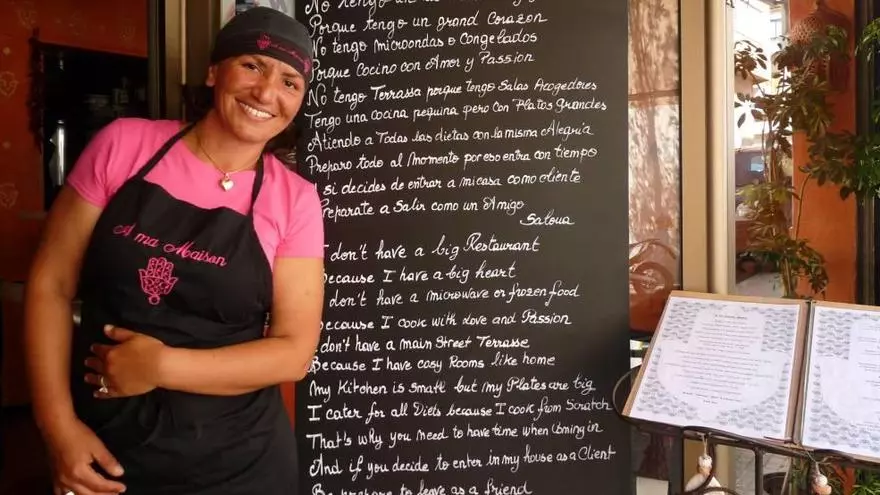 A ma Maison
No tengo un
Porque tengo un grand Corazon
No tengo microondas o Congelados
Porque Cocino con Amor y Passion
No tengo Terrassa porque tengo Salas Acogedores
Tengo una cocina pequina pero con Platos Grandes
Atiendo a Todas las dietas con la misma Alegria
Preparo todo al Momento por eso entra con tiempo
si decides de entrar a mi casa como cliente
Preparate a Salir como un Amigo
Saloua
I don't have a big Restaurant
Because I have a big heart
I don't have a microwave or frozen food
Because I cook with Love and Passion
I don't have a main Street Terrasse
Because I have cosy Rooms like home
My Kitchen is small but my Plates are big
I cater for all Diets because I cook from Scratch
That's why you need to have time when Coming in
And if you decide to enter in my house as a Client
Be prepare to leave as a friend